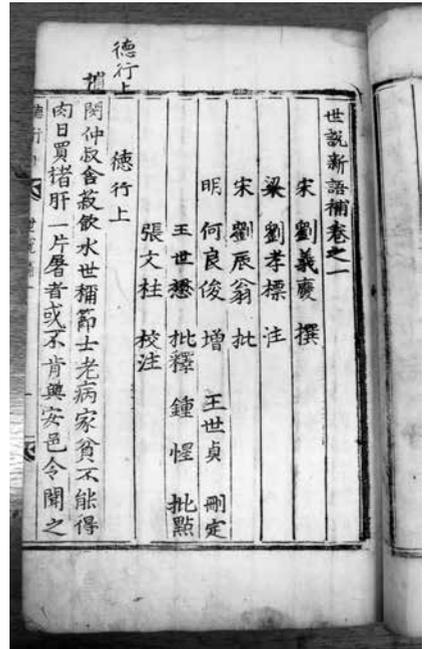 世説新語補卷之一
宋 劉義慶 撰
梁 劉孝標 注
宋 劉辰翁 批
明 何良俊 增 王世貞 刪定
王世懋 批釋 鍾惺 批點
張文柱 校注
德行上
德行上
補
閔仲叔含菽飲水世稱節士老病家貧不能得
肉日買猪肝一片屠者或不肯與安邑令聞之